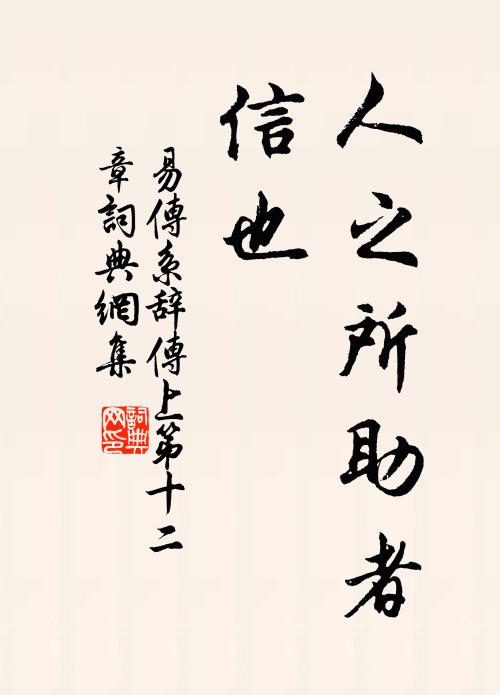 人之所助者
信也
易傳系辞傳上第十二
章詞典網集
詞典
网印